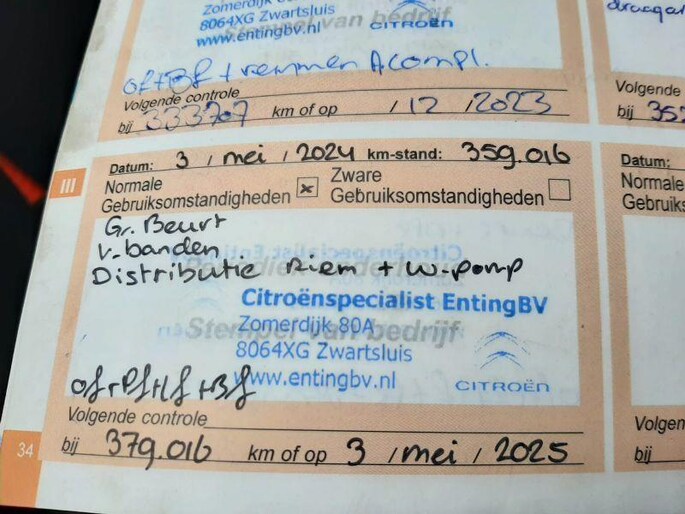 Zomerdijk 8
8064XG Zwartsluis
www.entingbv.nl
Stempel van bedrijf
CITROËN
of+Bf + remmen A compl.
Volgende controle
bij 333707 km of op / 12 / 2023
III
Datum: 3 / mei / 2024 km-stand: 359.016
Normale Gebruiksomstandigheden x Zware Gebruiksomstandigheden
Gr. Beurt
v. banden
Distributie riem + w-pomp
Citroënspecialist EntingBV
Zomerdijk 80A
Stempel van bedrijf
8064XG Zwartsluis
www.entingbv.nl
CITROËN
of+Pf+lf+Bf
Volgende controle
bij 379.016 km of op 3 / mei / 2025
34
Volgende
bij 35
Datum:
Normale
Gebruiks
Volgen
bij